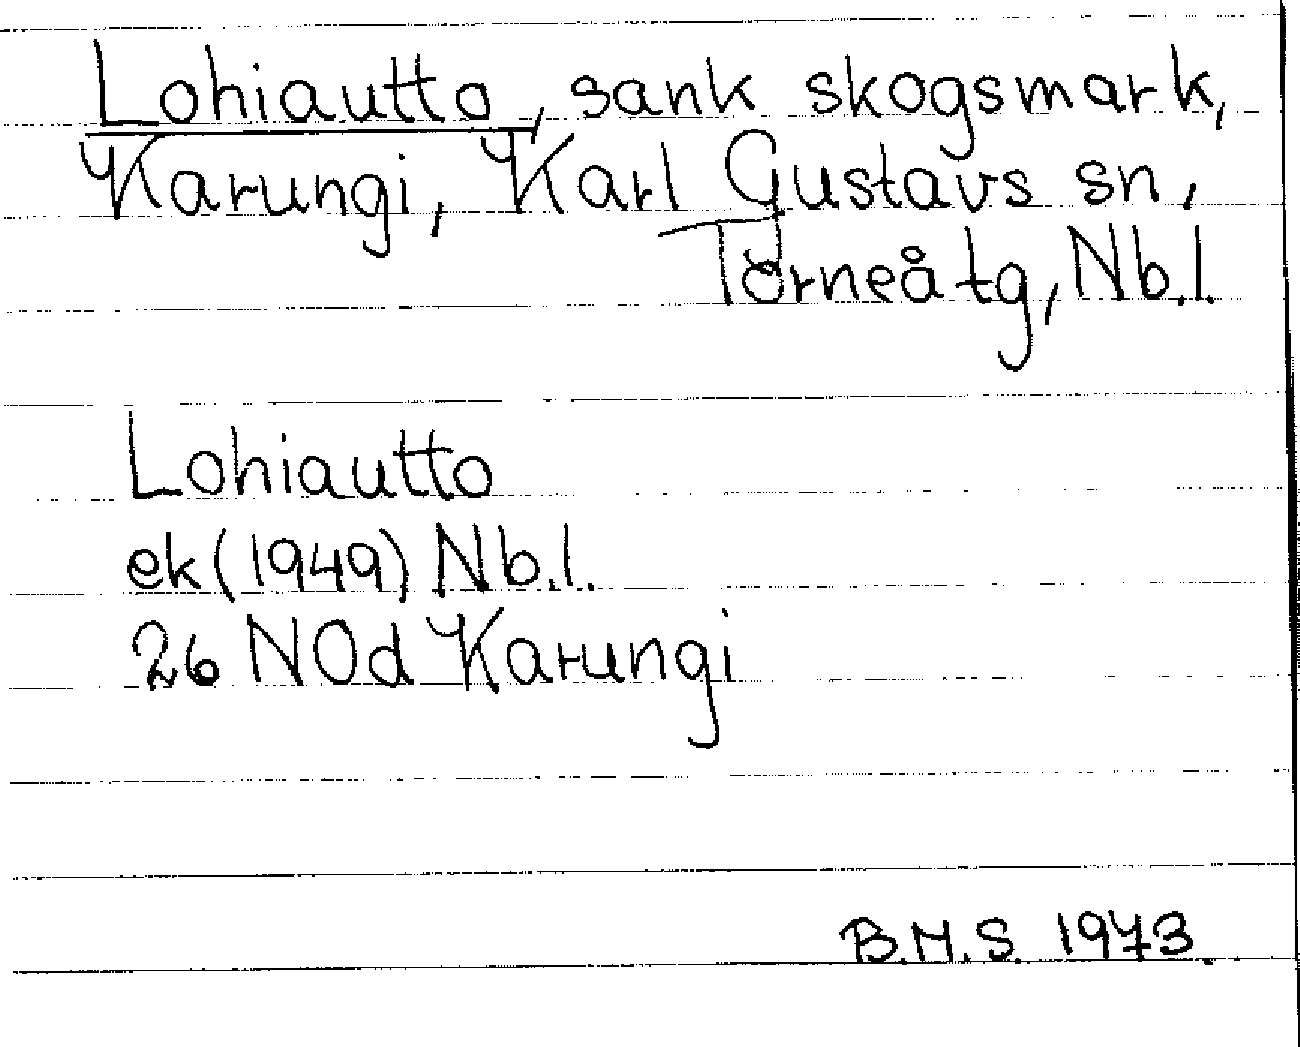 Lohiautto, sank skogsmark,
Karungi, Karl Gustavs sn,
Torneå tg, Nb.l.
Lohiautto
ek (1949) Nb.l.
26 NOd Karungi
B.M.S. 1973.